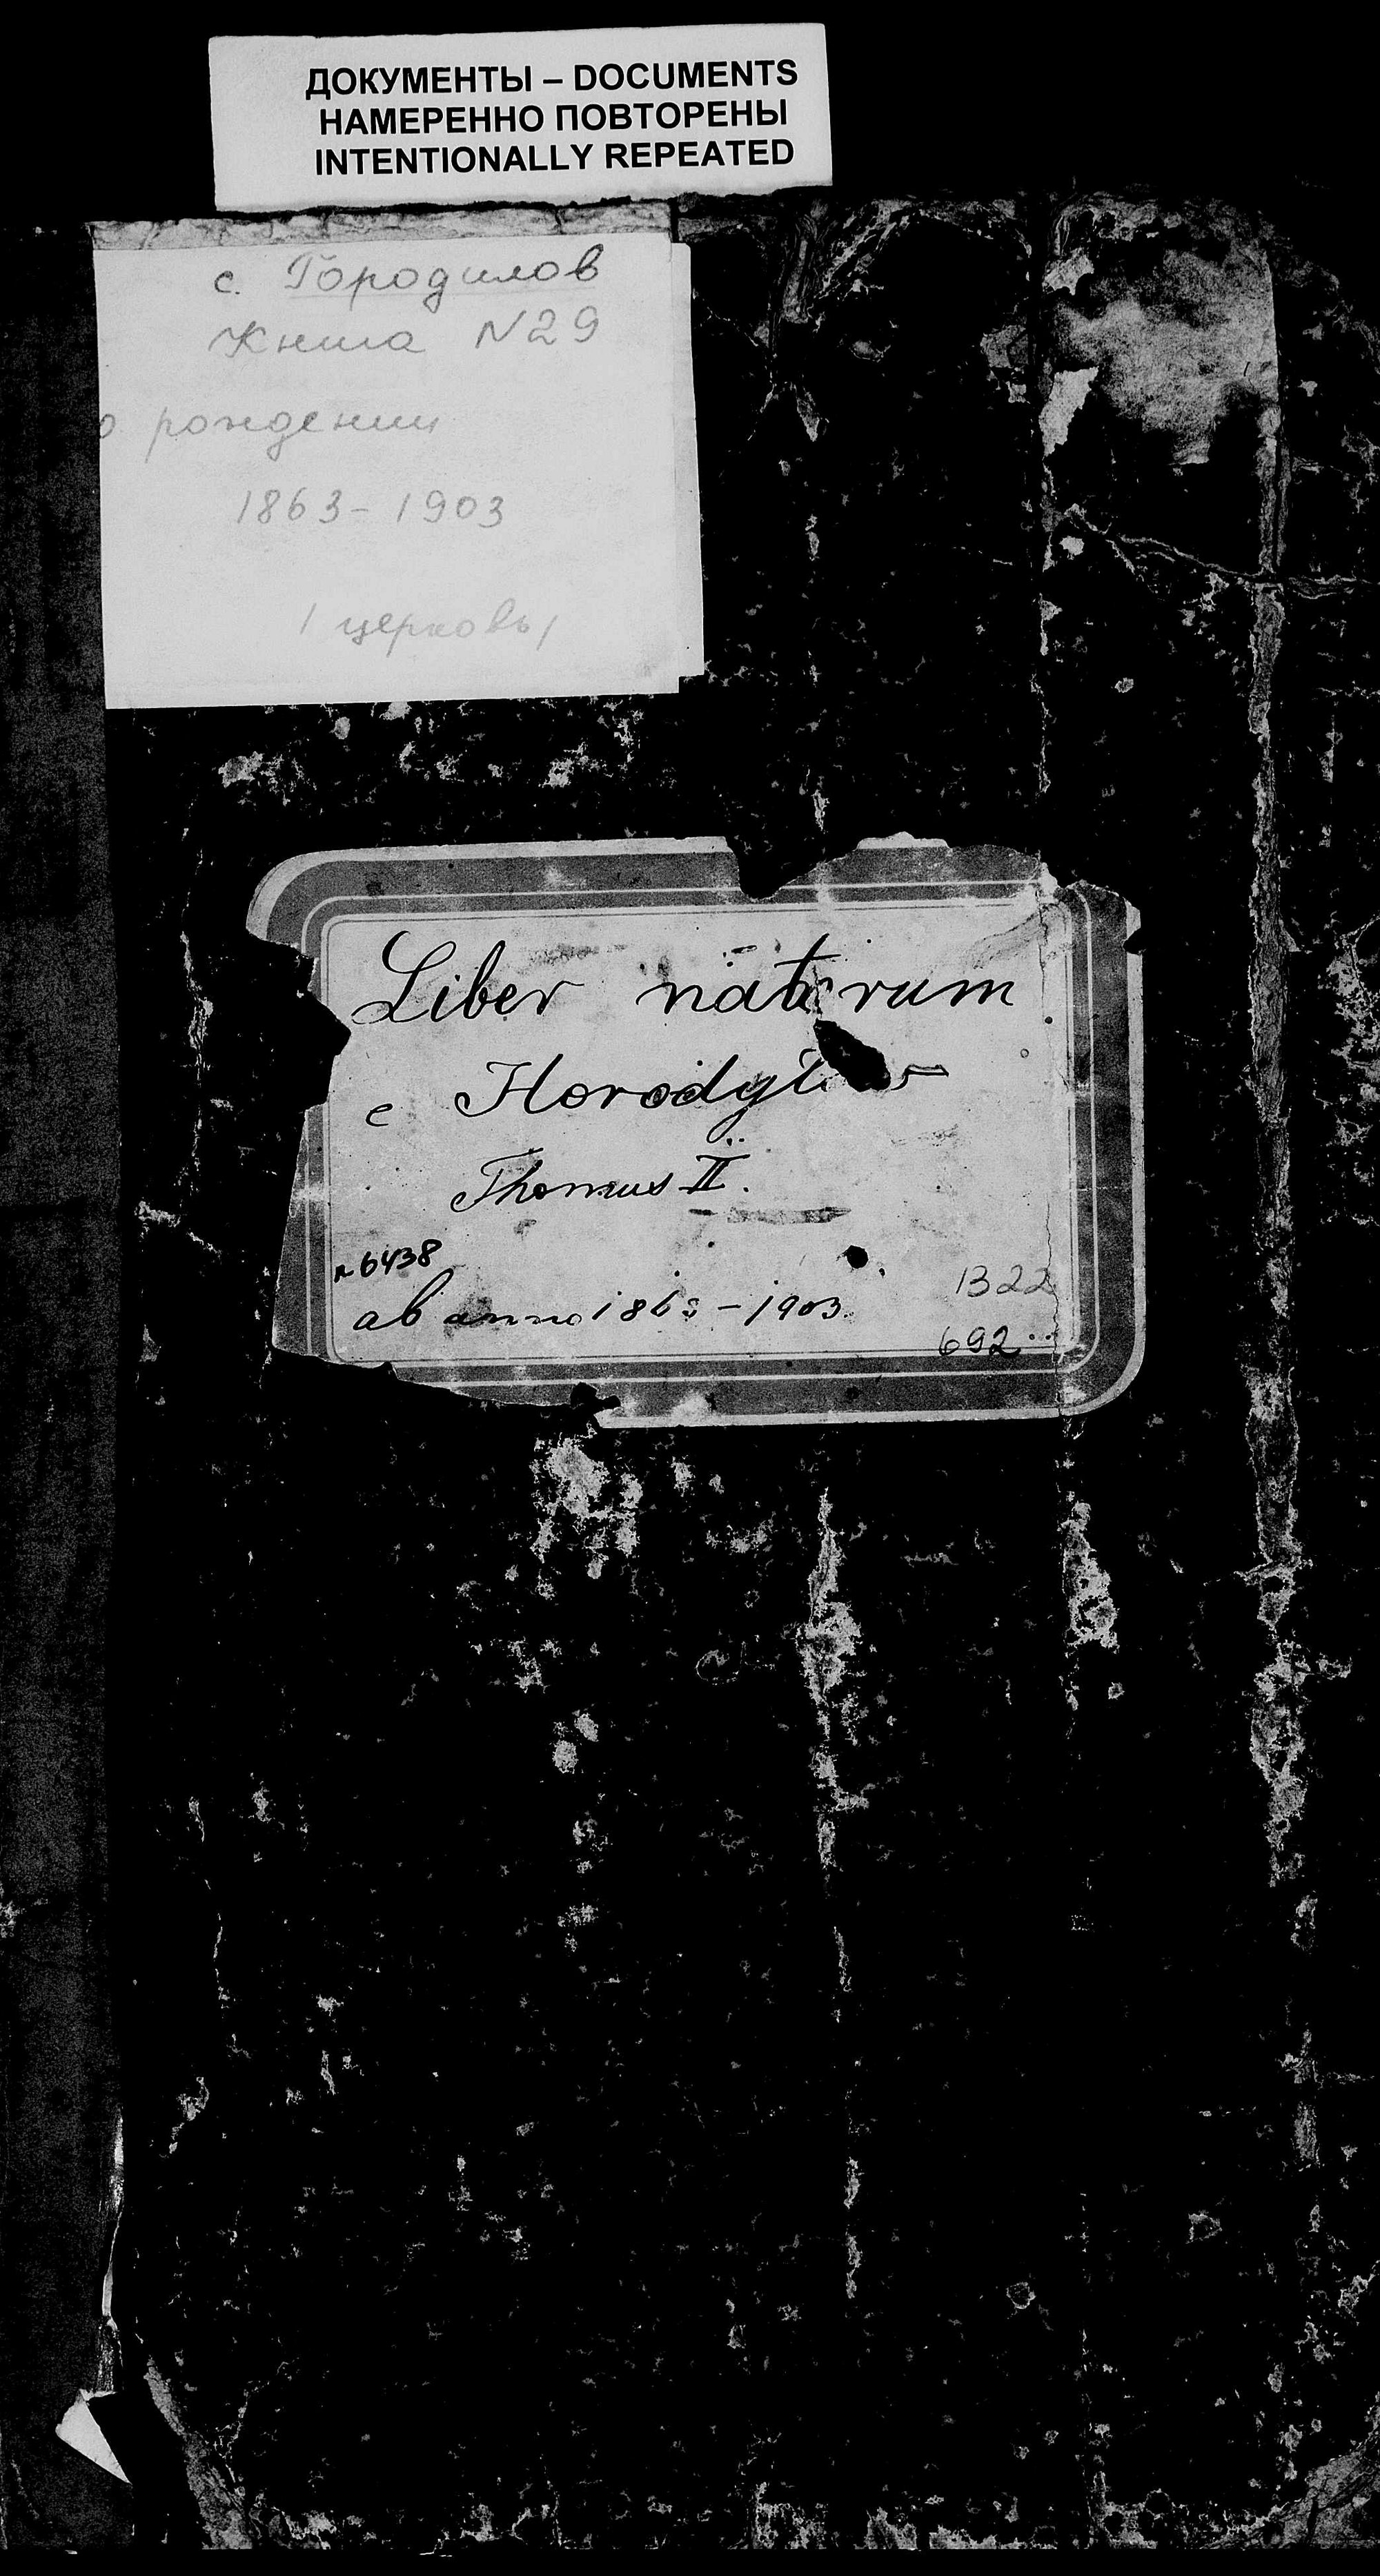 ДОКУМЕНТЫ – DOCUMENTS
НАМЕРЕННО ПОВТОРЕНЫ
INTENTIONALLY REPEATED
с. Городилов
Книга N29
о рождении
1863-1903
/церковь/
Liber natorum
e
Thomus II.
№ 6438
ab anno 1863 - 1903.
1322
692